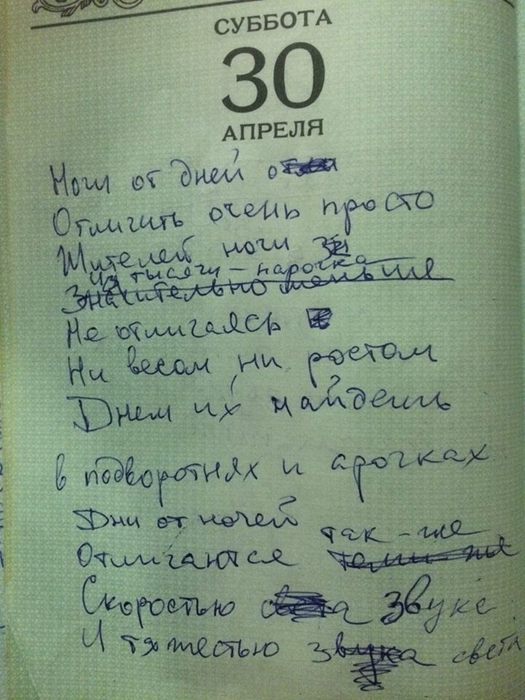 СУББОТА
30
АПРЕЛЯ
Ночи от дней
Отличить очень просто
Жителей ночи
Из тысячи - парочка
Значительно меньше
Не отличаясь
Ни весом, ни ростом
Днем их найдешь
в подворотнях и арочках
Дни от ночей
так-же
Отличаются теми-же
Скоростью света звука
И тяжестью звука света